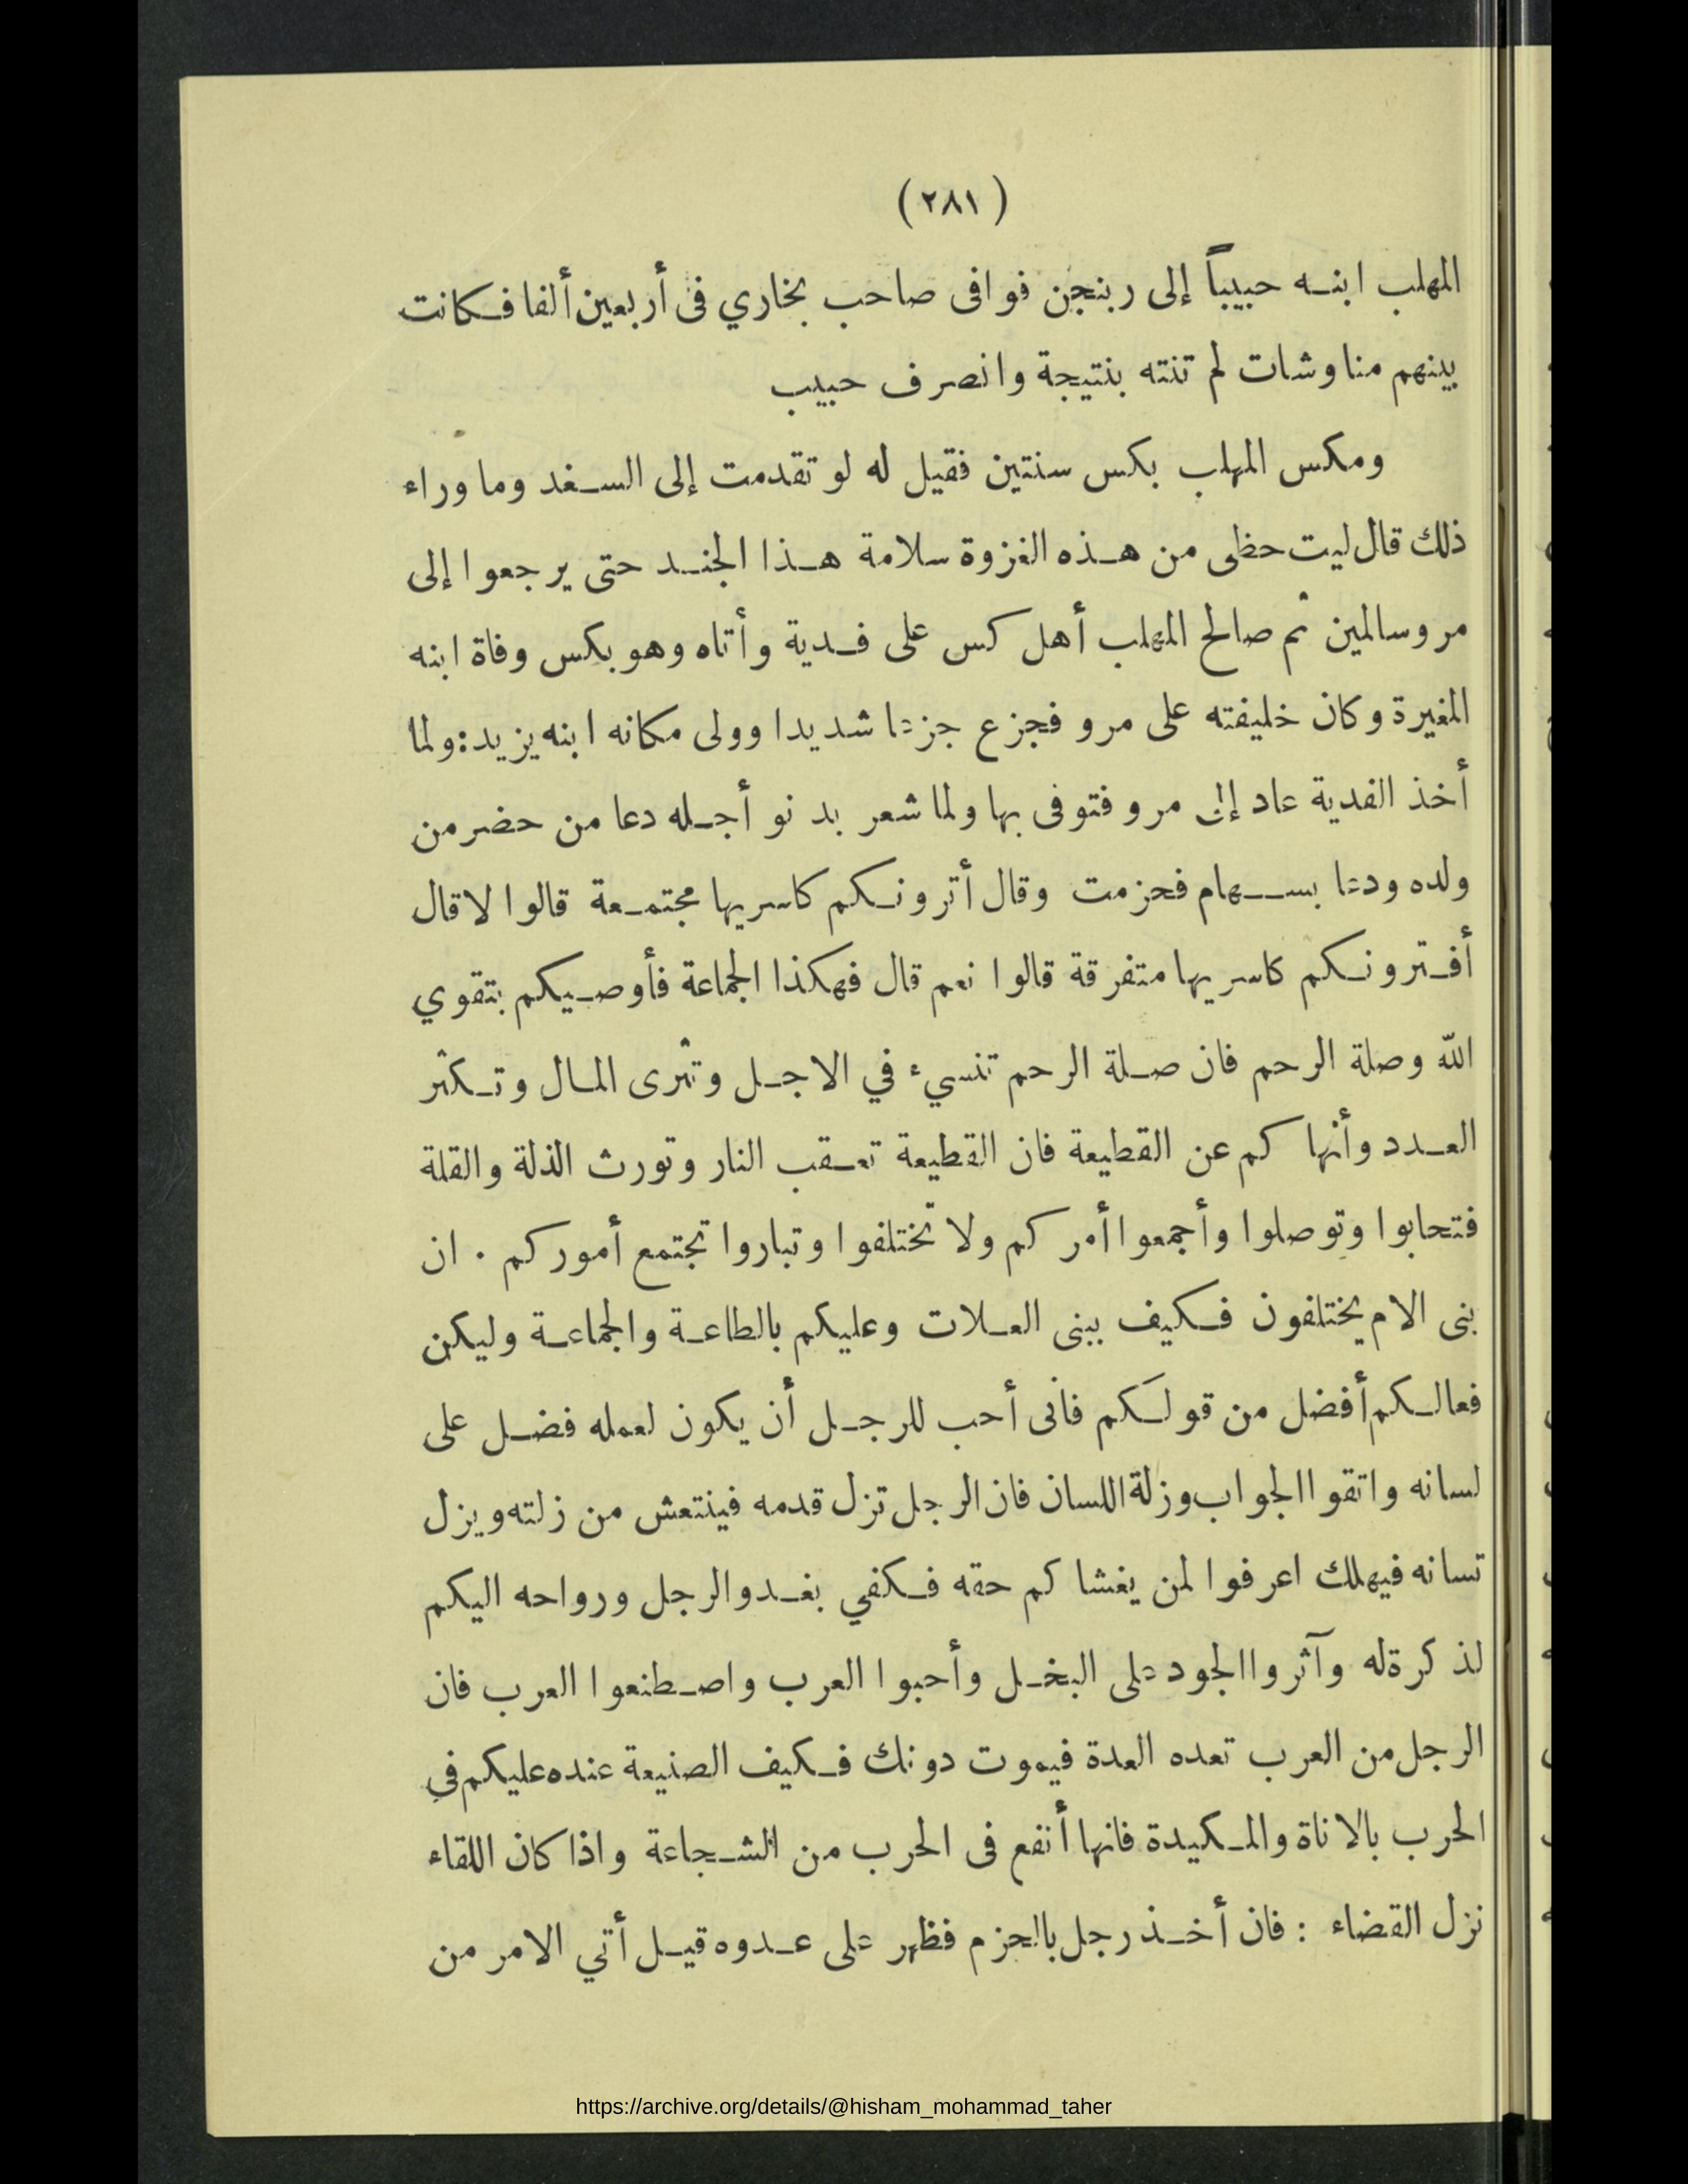 (٢٨١)
المهلب ابنه حبيباً إلى ربنجن فوافى صاحب بخاري فى أربعين ألفا فكانت
بينهم مناوشات لم تنته بنتيجة وانصرف حبيب
ومكس المهلب بكس سنتين فقيل له لو تقدمت إلى السغد وما وراء
ذلك قال ليت حظى من هذه الغزوة سلامة هذا الجند حتى يرجعوا إلى
مرو سالمين ثم صالح المهلب أهل كس على فدية وأتاه وهو بكس وفاة ابنه
المغيرة وكان خليفته على مرو فجزع جزعا شديدا وولى مكانه ابنه يزيد: ولما
أخذ الفدية عاد إلى مرو فتوفى بها ولما شعر بدنو أجله دعا من حضر من
ولده ودعا بسهام فحزمت وقال أترونكم كاسريها مجتمعة قالوا لا قال
أفترونكم كاسريها متفرقة قالوا نعم قال فهكذا الجماعة فأوصيكم بتقوي
الله وصلة الرحم فان صلة الرحم تنسيء في الاجل وتثرى المال وتكثر
العدد وأنها كم عن القطيعة فان القطيعة تعقب النار وتورث الذلة والقلة
فتحابوا وتوصلوا وأجمعوا أمركم ولا تختلفوا وتباروا تجتمع أموركم . ان
بنى الام يختلفون فكيف ببنى العلات وعليكم بالطاعة والجماعة وليكن
فعالكم أفضل من قولكم فانى أحب للرجل أن يكون لعمله فضل على
لسانه واتقوا الجواب وزلة اللسان فان الرجل تزل قدمه فينتعش من زلته ويزل
تسانه فيهلك اعرفوا لمن يغشا كم حقه فكفي بغدو الرجل ورواحه اليكم
لذ كرة له وآثروا الجود على البخل وأحبوا العرب واصطنعوا العرب فان
الرجل من العرب تعده العدة فيموت دونك فكيف الصنيعة عنده عليكم في
الحرب بالاناة والمكيدة فانها أنفع فى الحرب من الشجاعة واذا كان اللقاء
نزل القضاء : فان أخذ رجل بالحزم فظهر على عدوه قيل أتي الامر من
https://archive.org/details/@hisham_mohammad_taher